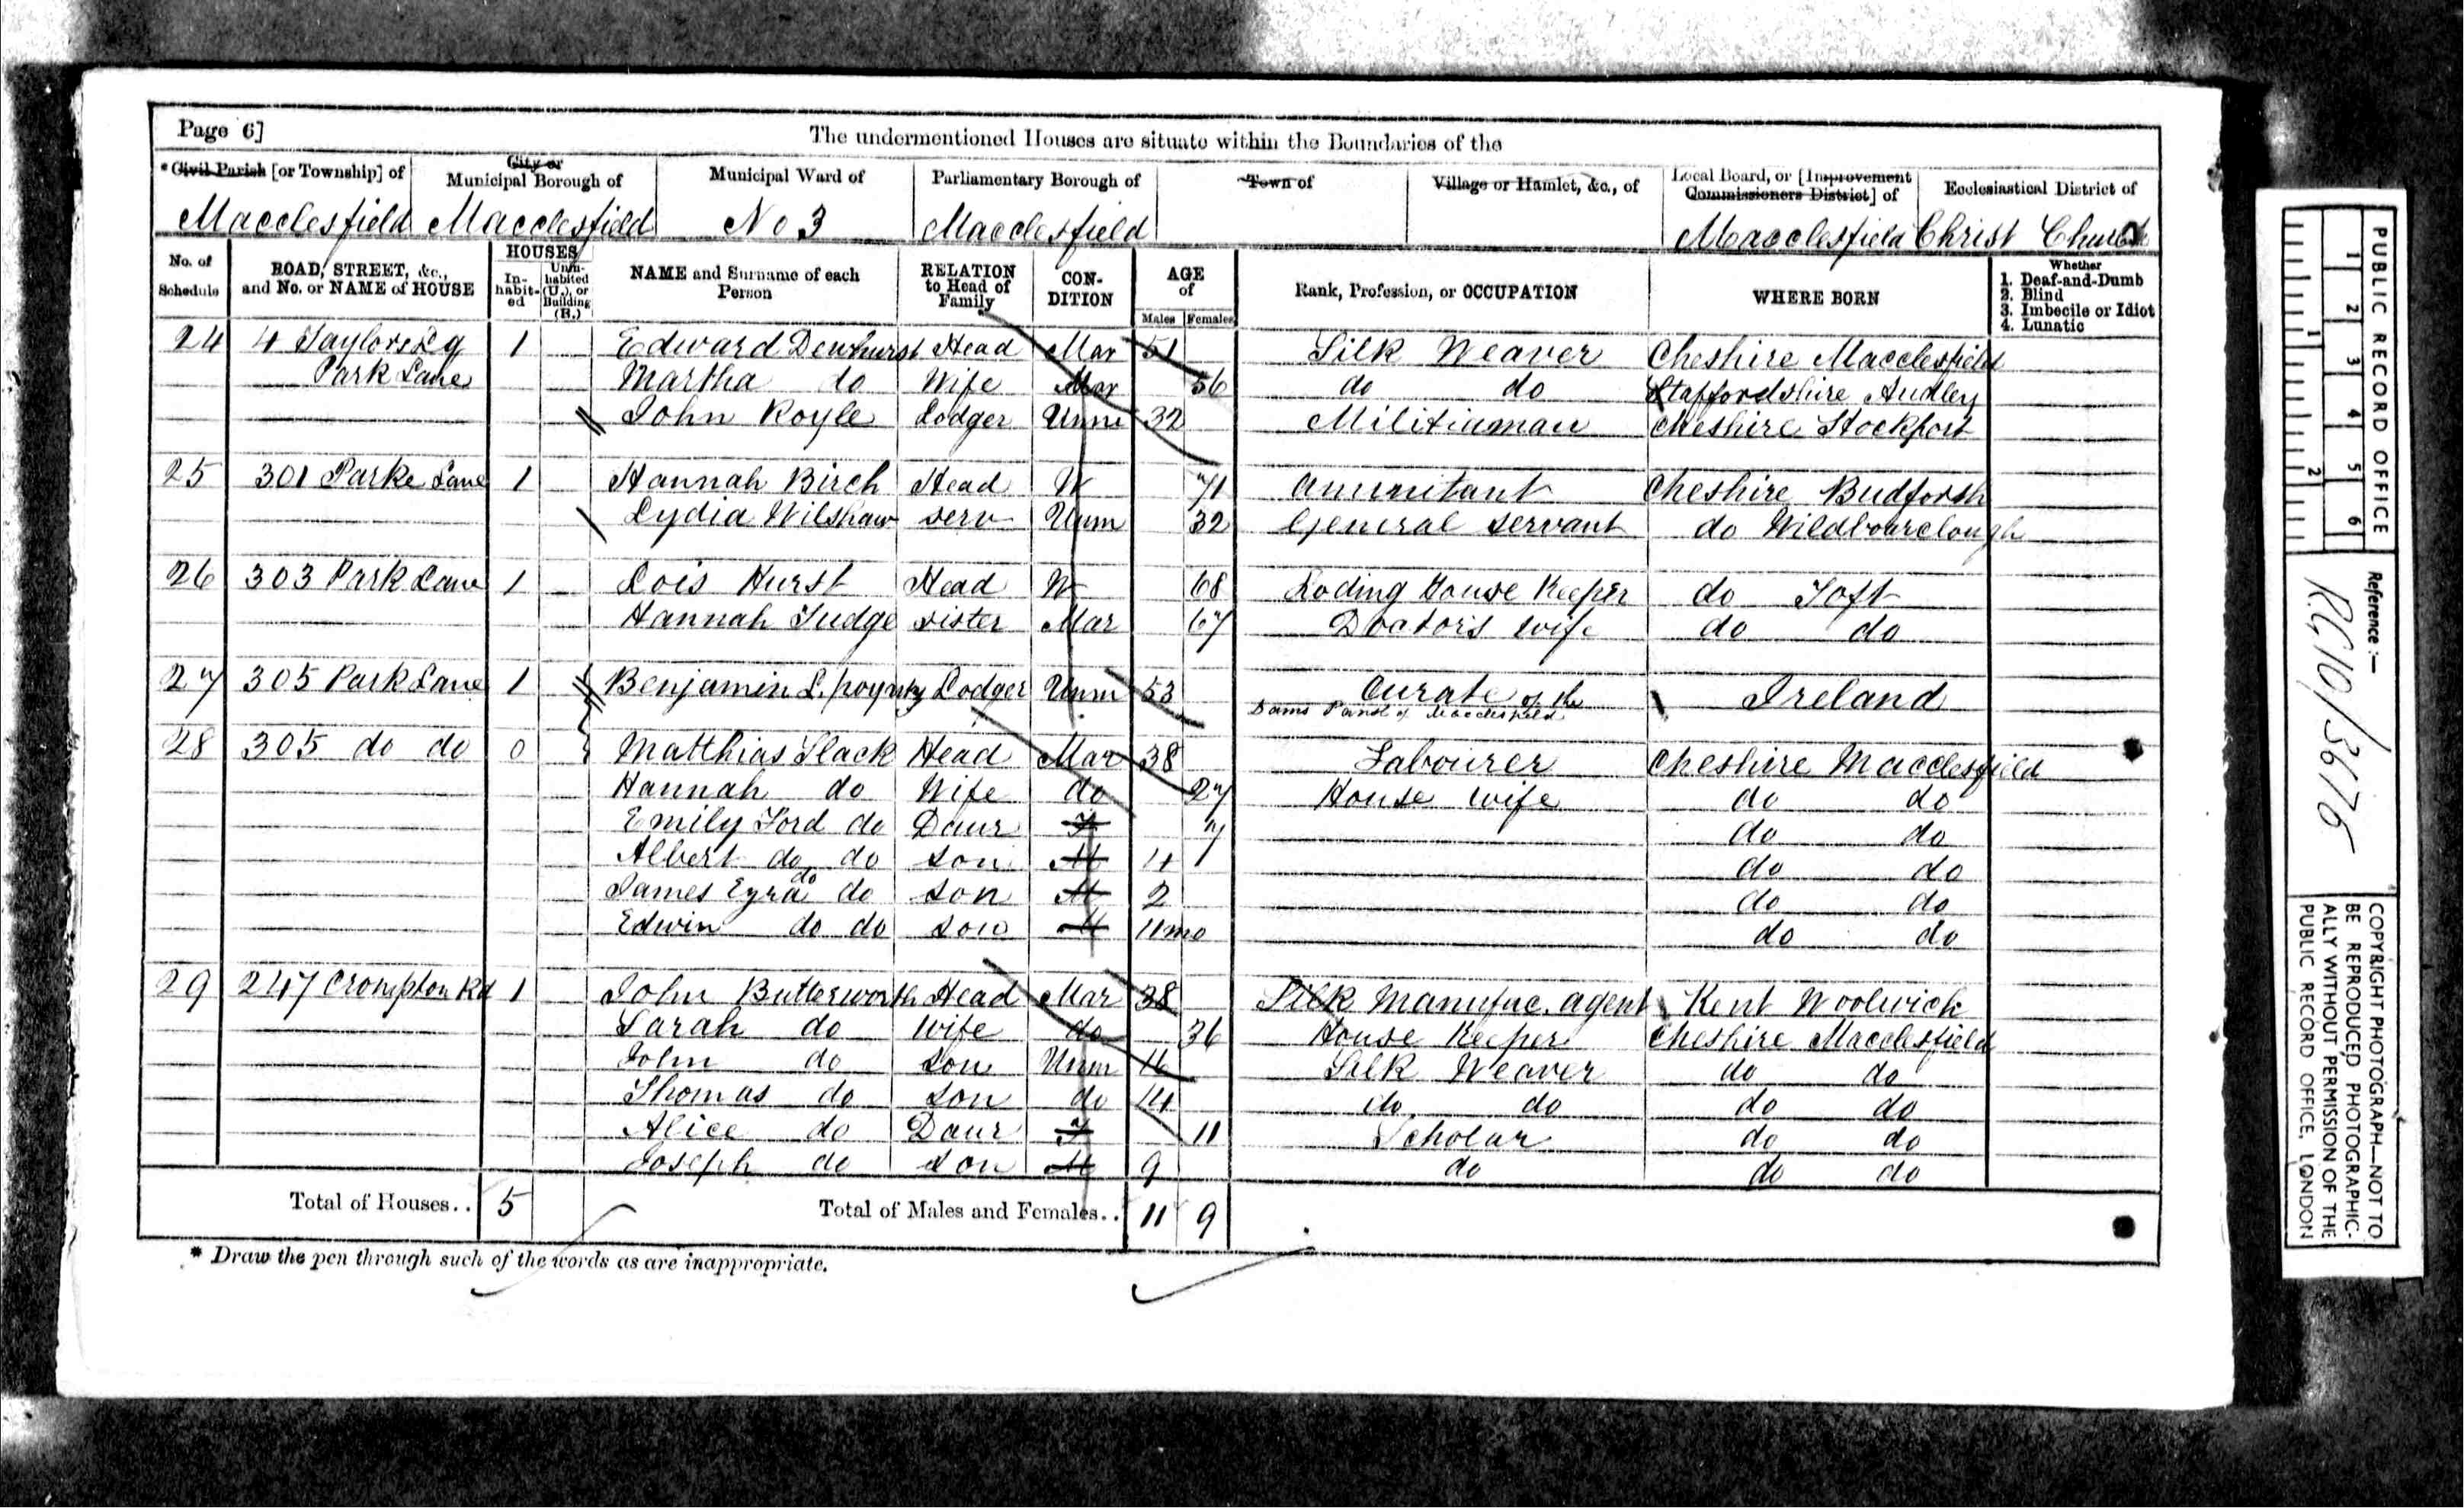 Page 6]
The undermentioned Houses are situate within the Boundaries of the
* Civil Parish [or Township] of
City or Municipal Borough of
Municipal Ward of
Parliamentary Borough of
Town of
Village or Hamlet, &c., of
Local Board, or [Improvement Commissioners District] of
Ecclesiastical District of
Macclesfield Macclesfield No 3 Macclesfield Macclesfield Christ Church
No. of Schedule
ROAD, STREET, &c., and No. or NAME of HOUSE
HOUSES
In-habit-ed
Unin-habited (U.), or Building (B.)
NAME and Surname of each Person
RELATION to Head of Family
CON-DITION
AGE of
Males Females
Rank, Profession, or OCCUPATION
WHERE BORN
Whether
1. Deaf-and-Dumb
2. Blind
3. Imbecile or Idiot
4. Lunatic
24 4 Taylors 1 Edward Dewhurst Head Mar 51 Silk Weaver Cheshire Macclesfield
Park Lane Martha do Wife Mar 56 do do Staffordshire Audley
John Royle Lodger Unm 32 Militiaman Cheshire Stockport
25 301 Parke Lane 1 Hannah Birch Head W 71 Cheshire Budforth
Lydia Wilshaw serv Unm 32 General servant do Wildboarclough
26 303 Park Lane 1 Lois Hurst Head W 68 Loding House Keeper do Toft
Hannah Judge sister Mar 67 Doctors wife do do
27 305 Park Lane 1 Benjamin L. Lodger Unm 53 Curate of the Ireland
Parish of Macclesfield
28 305 do do 0 Matthias Slack Head Mar 38 Labourer Cheshire Macclesfield
Hannah do Wife do 27 House wife do do
Emily Ford do Daur F 7 do do
Albert do do son M 4 do do
James Ezra do do son M 2 do do
Edwin do do son M 11mo do do
29 247 Crompton Rd 1 John Butterworth Head Mar 38 Silk Manufac. agent Kent Woolwich
Sarah do wife do 36 House Keeper Cheshire Macclesfield
John do son Unm 16 Silk Weaver do do
Thomas do son do 14 do do do do
Alice do Daur F 11 Scholar do do
Joseph do son M 9 do do do
Total of Houses.. 5 Total of Males and Females.. 11 9
* Draw the pen through such of the words as are inappropriate.
PUBLIC RECORD OFFICE
1 2 3 4 5 6
1 2
Reference:—
RG10/3676
COPYRIGHT PHOTOGRAPH—NOT TO
BE REPRODUCED PHOTOGRAPHIC-
ALLY WITHOUT PERMISSION OF THE
PUBLIC RECORD OFFICE, LONDON